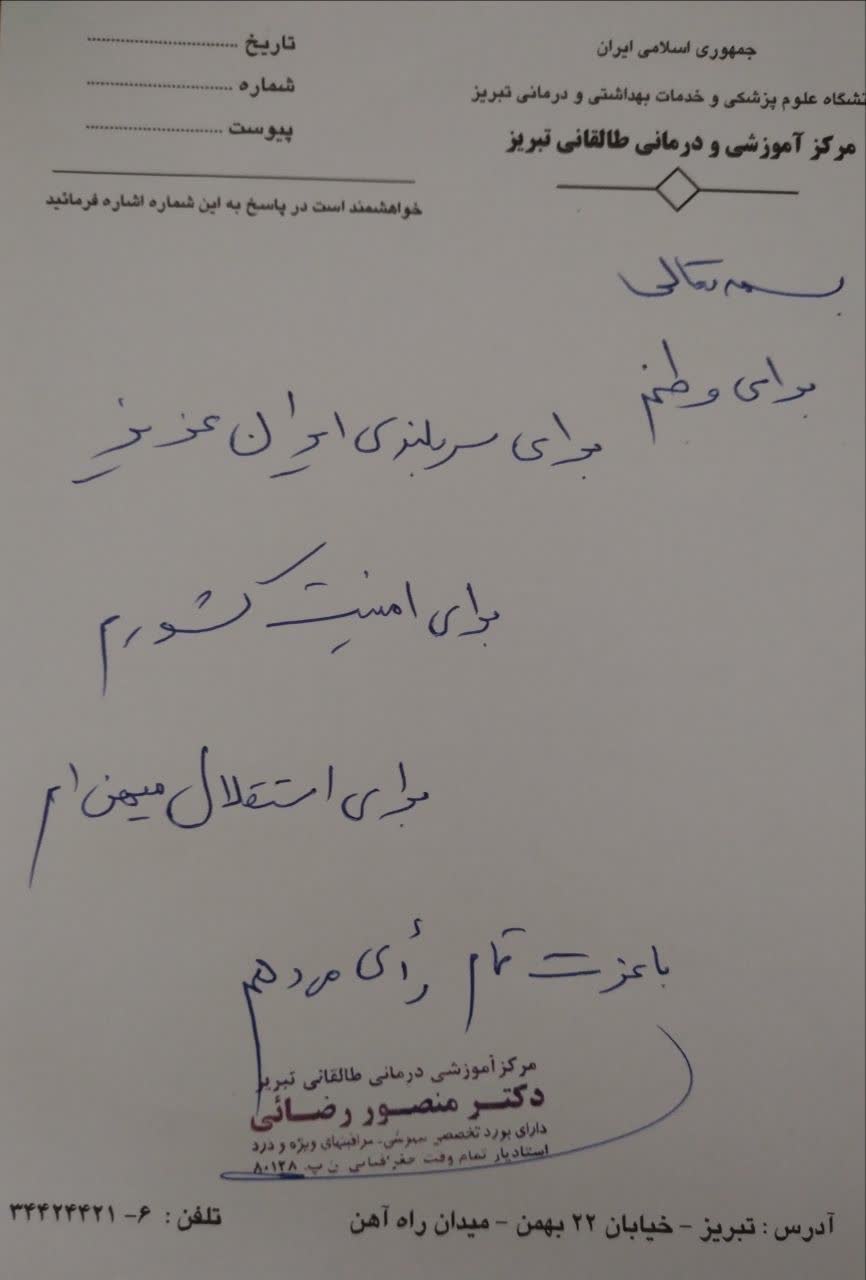 جمهوری اسلامی ایران
نشگاه علوم پزشکی و خدمات بهداشتی و درمانی تبریز
مرکز آموزشی و درمانی طالقانی تبریز
تاریخ ................................
شماره ................................
پیوست ................................
خواهشمند است در پاسخ به این شماره اشاره فرمائید
بسمه تعالی
برای وطنم
برای سربلندی ایران عزیز
برای امنیت کشورم
برای استقلال میهن ام
با عزت تمام رأی میدهم
مرکز آموزشی درمانی طالقانی تبریز
دکتر منصور رضائی
دارای بورد تخصصی بیهوشی، مراقبتهای ویژه و درد
استادیار تمام وقت ن پ ۸۰۱۲۸
آدرس : تبریز - خیابان ۲۲ بهمن - میدان راه آهن
تلفن : ۶- ۳۴۴۲۴۴۲۱